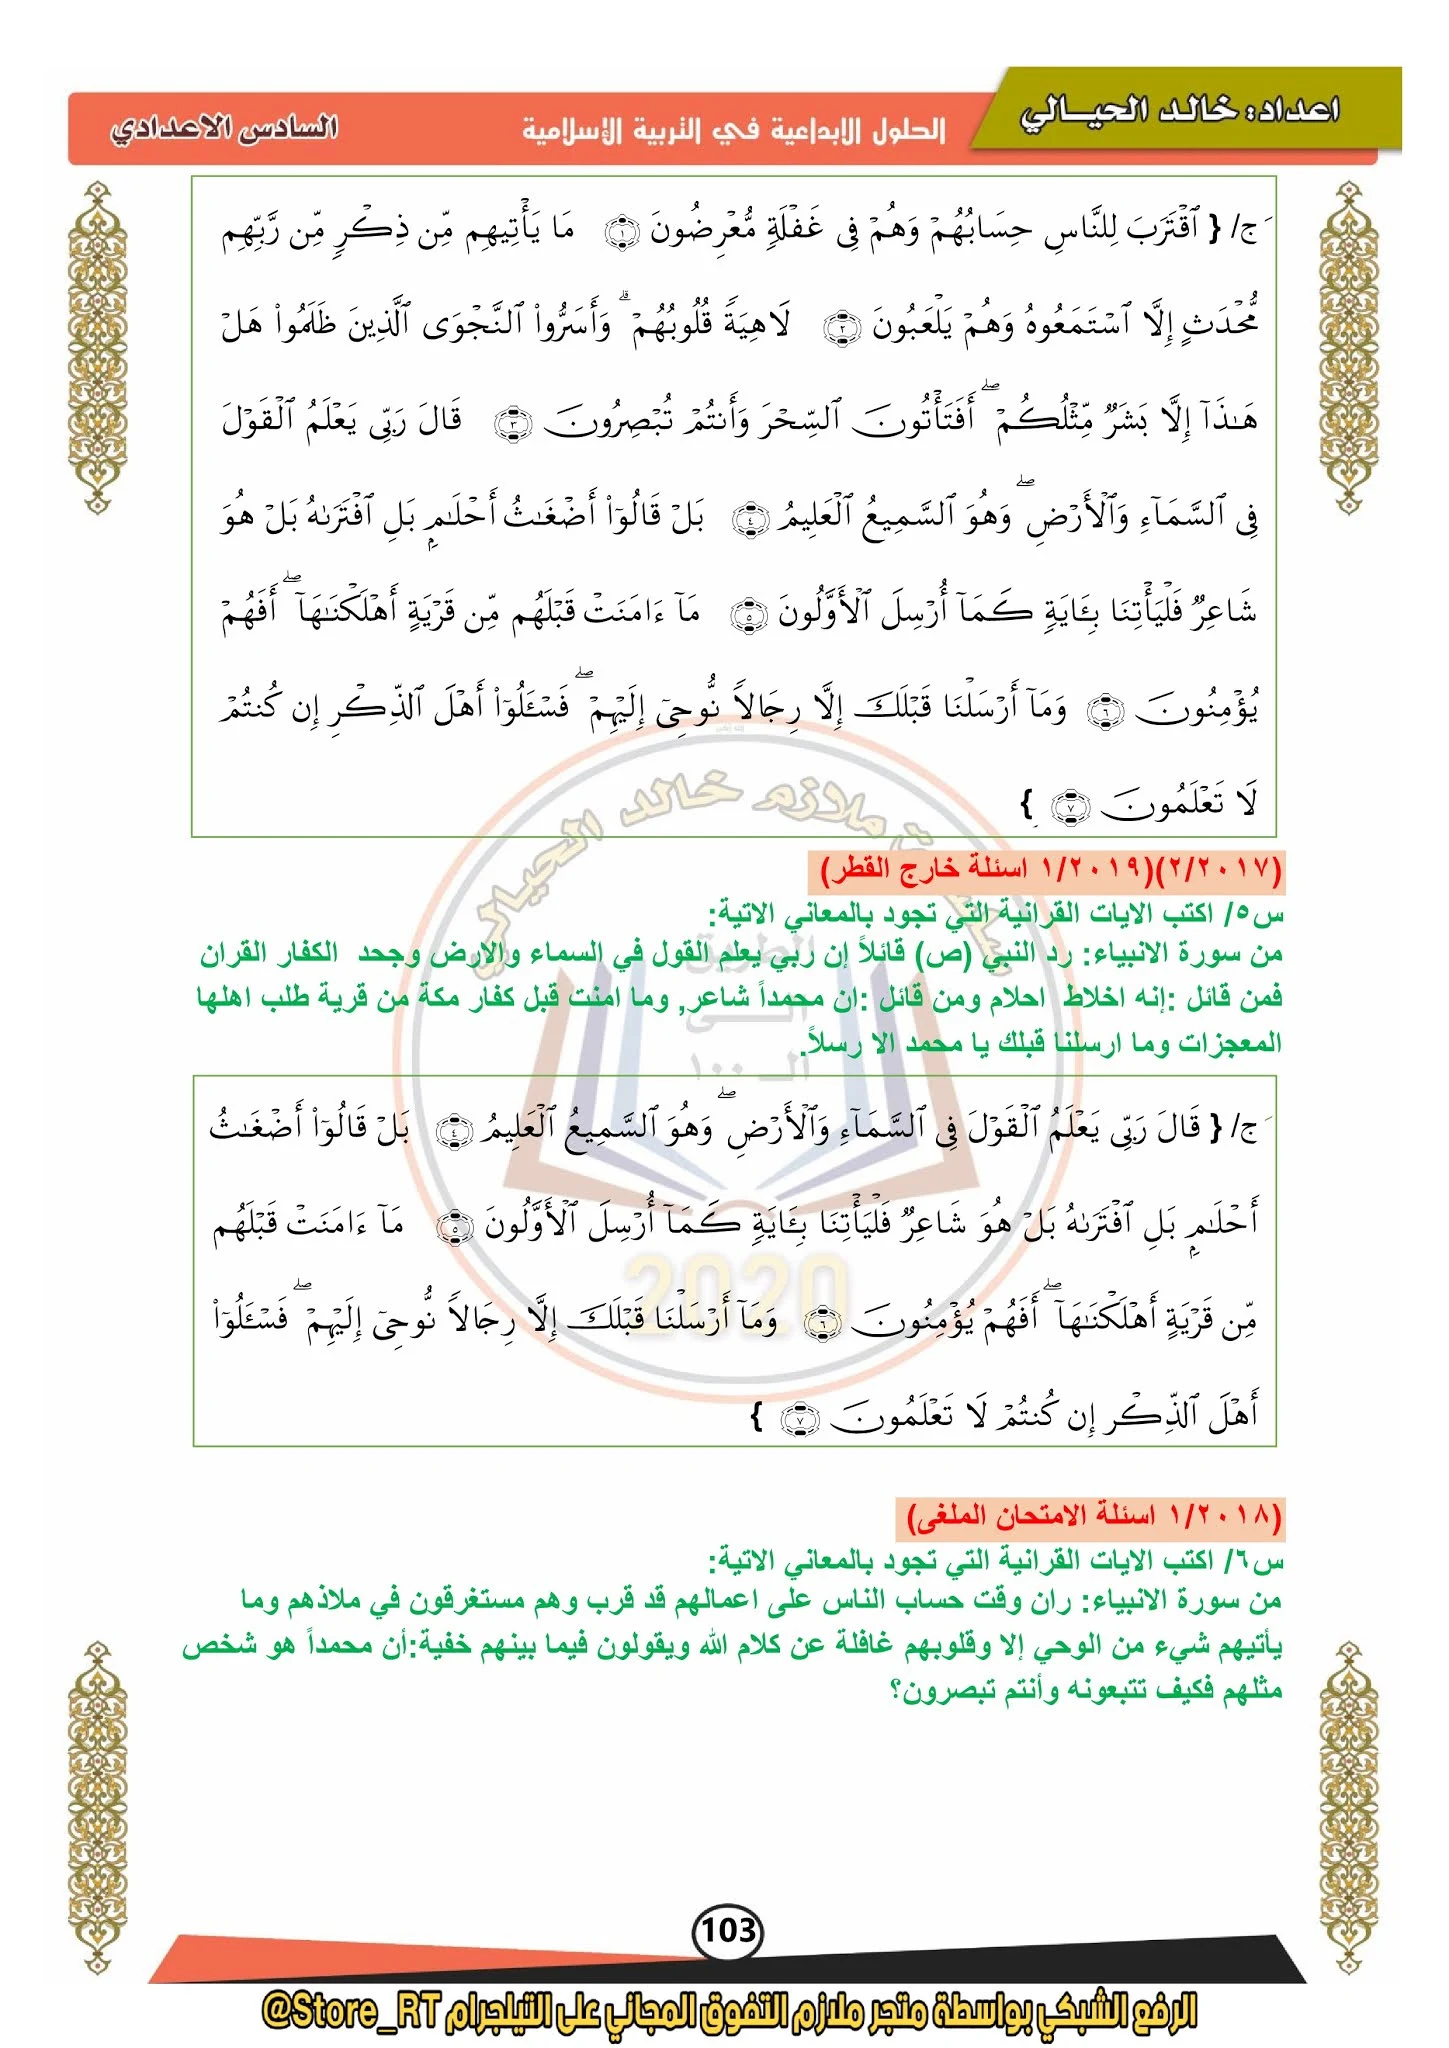 اعداد: خالد الحيـــالي
الحلول الإبداعية في التربية الإسلامية
السادس الاعدادي
َ ج/ { ٱقۡتَرَبَ لِلنَّاسِ حِسَابُهُمۡ وَهُمۡ فِى غَفۡلَةٍ۬ مُّعۡرِضُونَ ١ مَا يَأۡتِيهِم مِّن ذِڪۡرٍ۬ مِّن رَّبِّهِم
مُّحۡدَثٍ إِلَّا ٱسۡتَمَعُوهُ وَهُمۡ يَلۡعَبُونَ ٢ لَاهِيَةً۬ قُلُوبُهُمۡۗ وَأَسَرُّواْ ٱلنَّجۡوَى ٱلَّذِينَ ظَلَمُواْ هَلۡ
هَـٰذَآ إِلَّا بَشَرٌ۬ مِّثۡلُڪُمۡۖ أَفَتَأۡتُونَ ٱلسِّحۡرَ وَأَنتُمۡ تُبۡصِرُونَ ٣ قَالَ رَبِّى يَعۡلَمُ ٱلۡقَوۡلَ
فِى ٱلسَّمَآءِ وَٱلۡأَرۡضِۖ وَهُوَ ٱلسَّمِيعُ ٱلۡعَلِيمُ ٤ بَلۡ قَالُوٓاْ أَضۡغَـٰثُ أَحۡلَـٰمِۭ بَلِ ٱفۡتَرَٮٰهُ بَلۡ هُوَ
شَاعِرٌ۬ فَلۡيَأۡتِنَا بِـَٔايَةٍ۬ ڪَمَآ أُرۡسِلَ ٱلۡأَوَّلُونَ ٥ مَآ ءَامَنَتۡ قَبۡلَهُم مِّن قَرۡيَةٍ أَهۡلَكۡنَـٰهَآۖ أَفَهُمۡ
يُؤۡمِنُونَ ٦ وَمَآ أَرۡسَلۡنَا قَبۡلَكَ إِلَّا رِجَالاً۬ نُّوحِىٓ إِلَيۡہِمۡۖ فَسۡـَٔلُوٓاْ أَهۡلَ ٱلذِّڪۡرِ إِن كُنتُمۡ
لَا تَعۡلَمُونَ ٧ }
(٢/٢٠١٧)(١/٢٠١٩ اسئلة خارج القطر)
س٥/ اكتب الايات القرانية التي تجود بالمعاني الاتية:
من سورة الانبياء: رد النبي (ص) قائلاً إن ربي يعلم القول في السماء والارض وجحد الكفار القران
فمن قائل :إنه اخلاط احلام ومن قائل :ان محمداً شاعر, وما امنت قبل كفار مكة من قرية طلب اهلها
المعجزات وما ارسلنا قبلك يا محمد الا رسلاً.
َ ج/ { قَالَ رَبِّى يَعۡلَمُ ٱلۡقَوۡلَ فِى ٱلسَّمَآءِ وَٱلۡأَرۡضِۖ وَهُوَ ٱلسَّمِيعُ ٱلۡعَلِيمُ ٤ بَلۡ قَالُوٓاْ أَضۡغَـٰثُ
أَحۡلَـٰمِۭ بَلِ ٱفۡتَرَٮٰهُ بَلۡ هُوَ شَاعِرٌ۬ فَلۡيَأۡتِنَا بِـَٔايَةٍ۬ ڪَمَآ أُرۡسِلَ ٱلۡأَوَّلُونَ ٥ مَآ ءَامَنَتۡ قَبۡلَهُم
مِّن قَرۡيَةٍ أَهۡلَكۡنَـٰهَآۖ أَفَهُمۡ يُؤۡمِنُونَ ٦ وَمَآ أَرۡسَلۡنَا قَبۡلَكَ إِلَّا رِجَالاً۬ نُّوحِىٓ إِلَيۡہِمۡۖ فَسۡـَٔلُوٓاْ
أَهۡلَ ٱلذِّڪۡرِ إِن كُنتُمۡ لَا تَعۡلَمُونَ ٧ }
2020
(١/٢٠١٨ اسئلة الامتحان الملغى)
س٦/ اكتب الايات القرانية التي تجود بالمعاني الاتية:
من سورة الانبياء: ران وقت حساب الناس على اعمالهم قد قرب وهم مستغرقون في ملاذهم وما
يأتيهم شيء من الوحي إلا وقلوبهم غافلة عن كلام الله ويقولون فيما بينهم خفية:أن محمداً هو شخص
مثلهم فكيف تتبعونه وأنتم تبصرون؟
103
الرفع الشبكي بواسطة متجر ملازم التفوق المجاني على التيلجرام @Store_RT